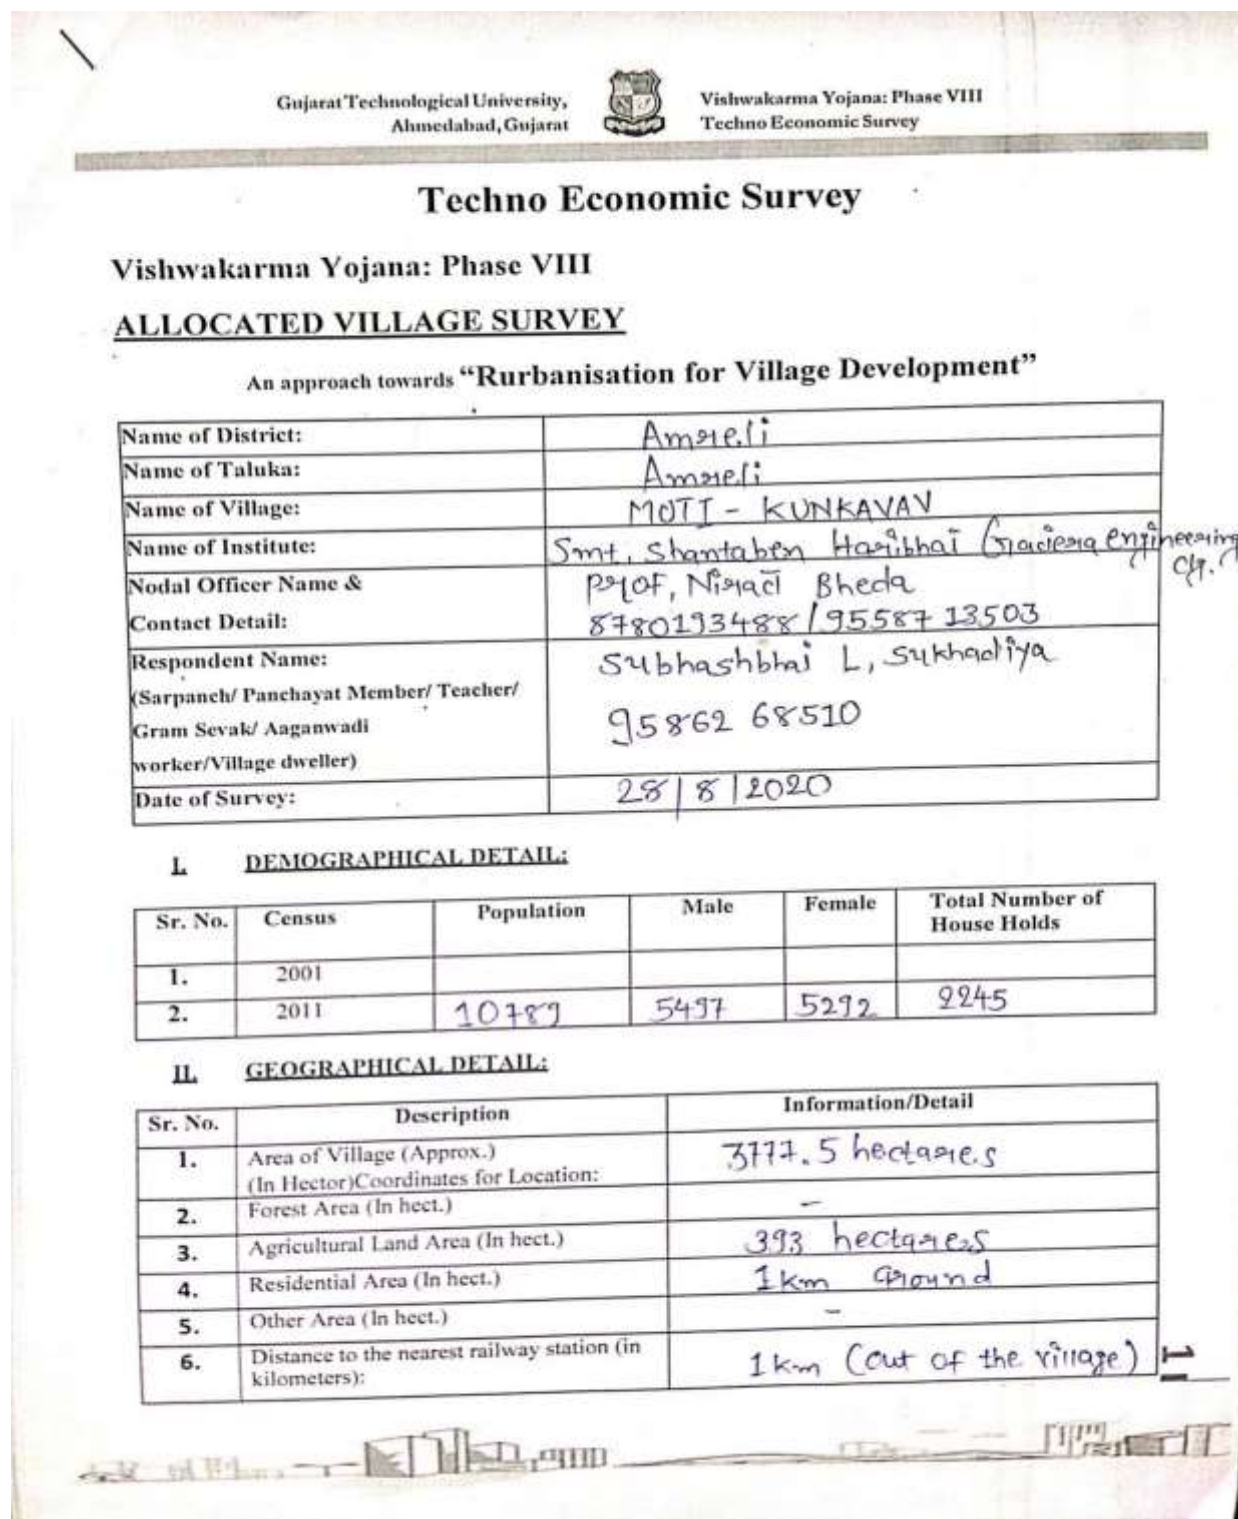 Gujarat Technological University,
Ahmedabad, Gujarat
Vishwakarma Yojana: Phase VIII
Techno Economic Survey
Techno Economic Survey
Vishwakarma Yojana: Phase VIII
ALLOCATED VILLAGE SURVEY
An approach towards “Rurbanisation for Village Development”
Name of District: Amreli
Name of Taluka: Amreli
Name of Village: MOTI - KUNKAVAV
Name of Institute: Smt. Shantaben Haribhai Gajera engineering
Nodal Officer Name & Prof, Nirad Bheda
Contact Detail: 8780193488 / 95587 13503
Respondent Name: Subhashbhai L, Sukhadiya
(Sarpanch/ Panchayat Member/ Teacher/
Gram Sevak/ Aaganwadi 95862 68510
worker/Village dweller)
Date of Survey: 28/8/2020
I. DEMOGRAPHICAL DETAIL:
Sr. No. Census Population Male Female Total Number of
House Holds
1. 2001
2. 2011 10789 5497 5292 2245
II. GEOGRAPHICAL DETAIL:
Sr. No. Description Information/Detail
1. Area of Village (Approx.) 3777.5 hectares
(In Hector)Coordinates for Location:
2. Forest Area (In hect.) -
3. Agricultural Land Area (In hect.) 393 hectares
4. Residential Area (In hect.) 1 km Ground
5. Other Area (In hect.) -
6. Distance to the nearest railway station (in 1 km (out of the village)
kilometers):
11